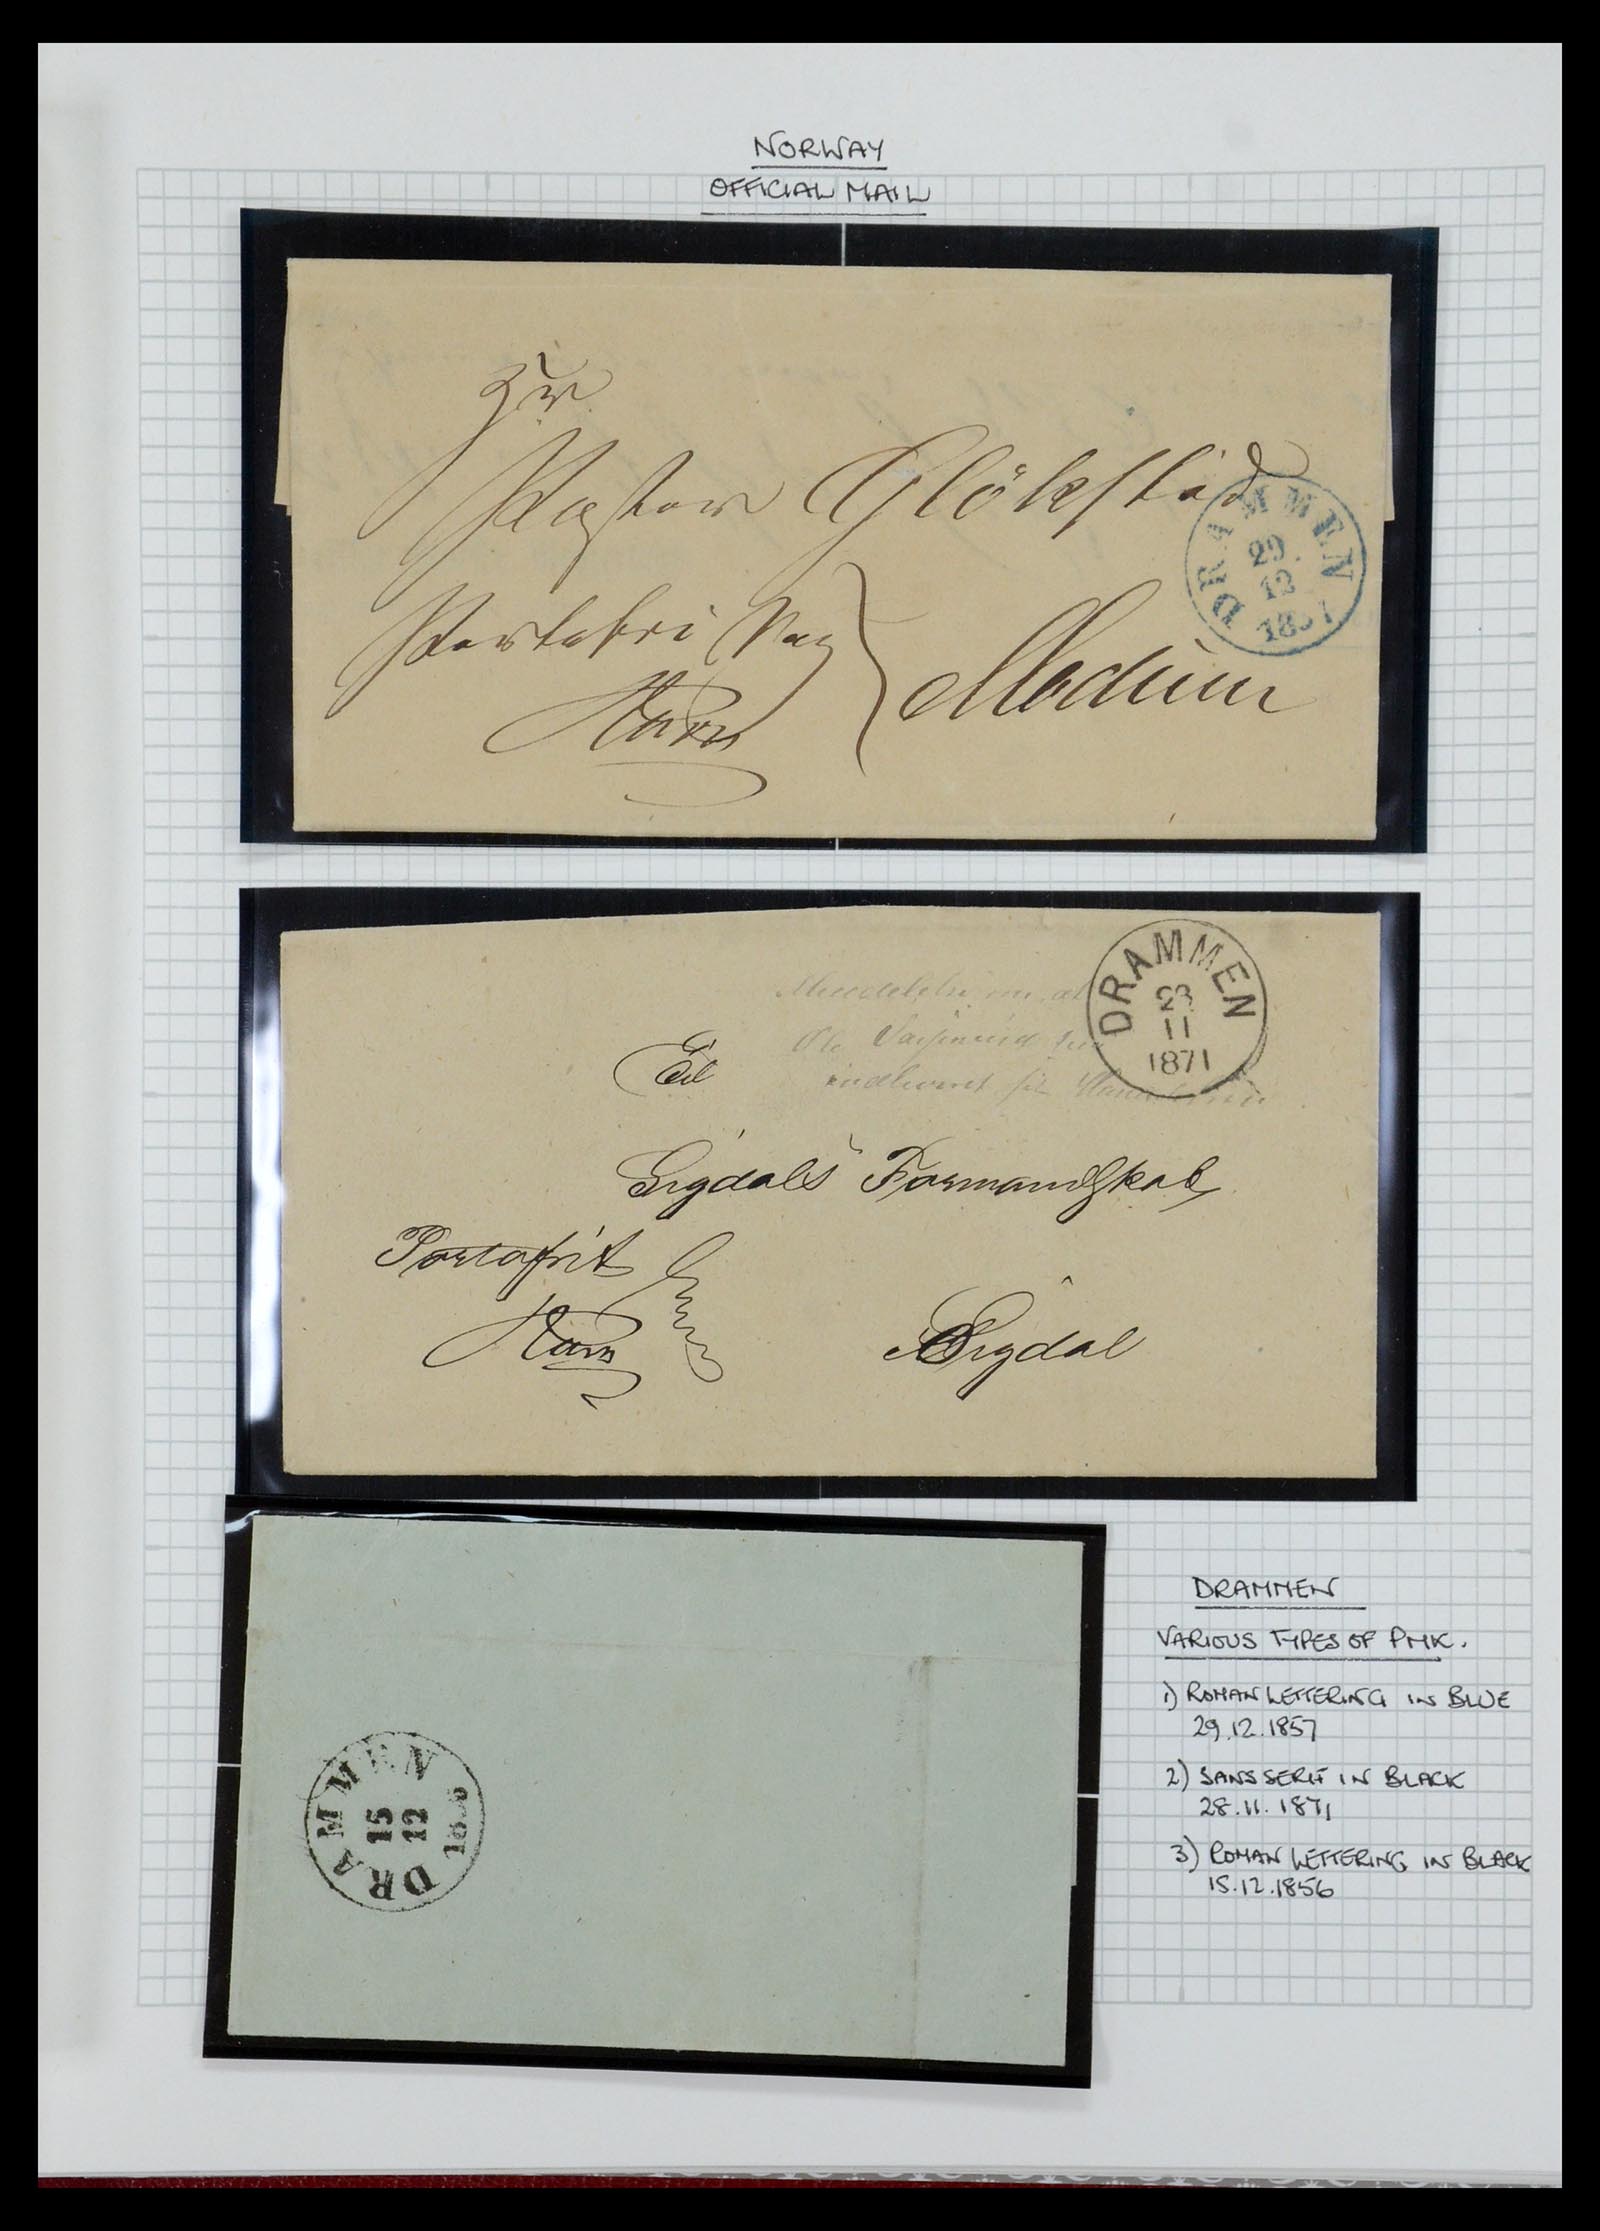 NORWAY
OFFICIAL MAIL
Hr
Pastor Glökstad
Portofri Sag
Modum
DRAMMEN
29
12
1857
DRAMMEN
11
1871
Til
Sigdals Formandskab
Portofrit
Sigdal
DRAMMEN
15
12
DRAMMEN
VARIOUS TYPES OF PMK.
1) ROMAN LETTERING IN BLUE
29.12.1857
2) SANS SERIF IN BLACK
28.11.1871
3) ROMAN LETTERING IN BLACK
15.12.1856